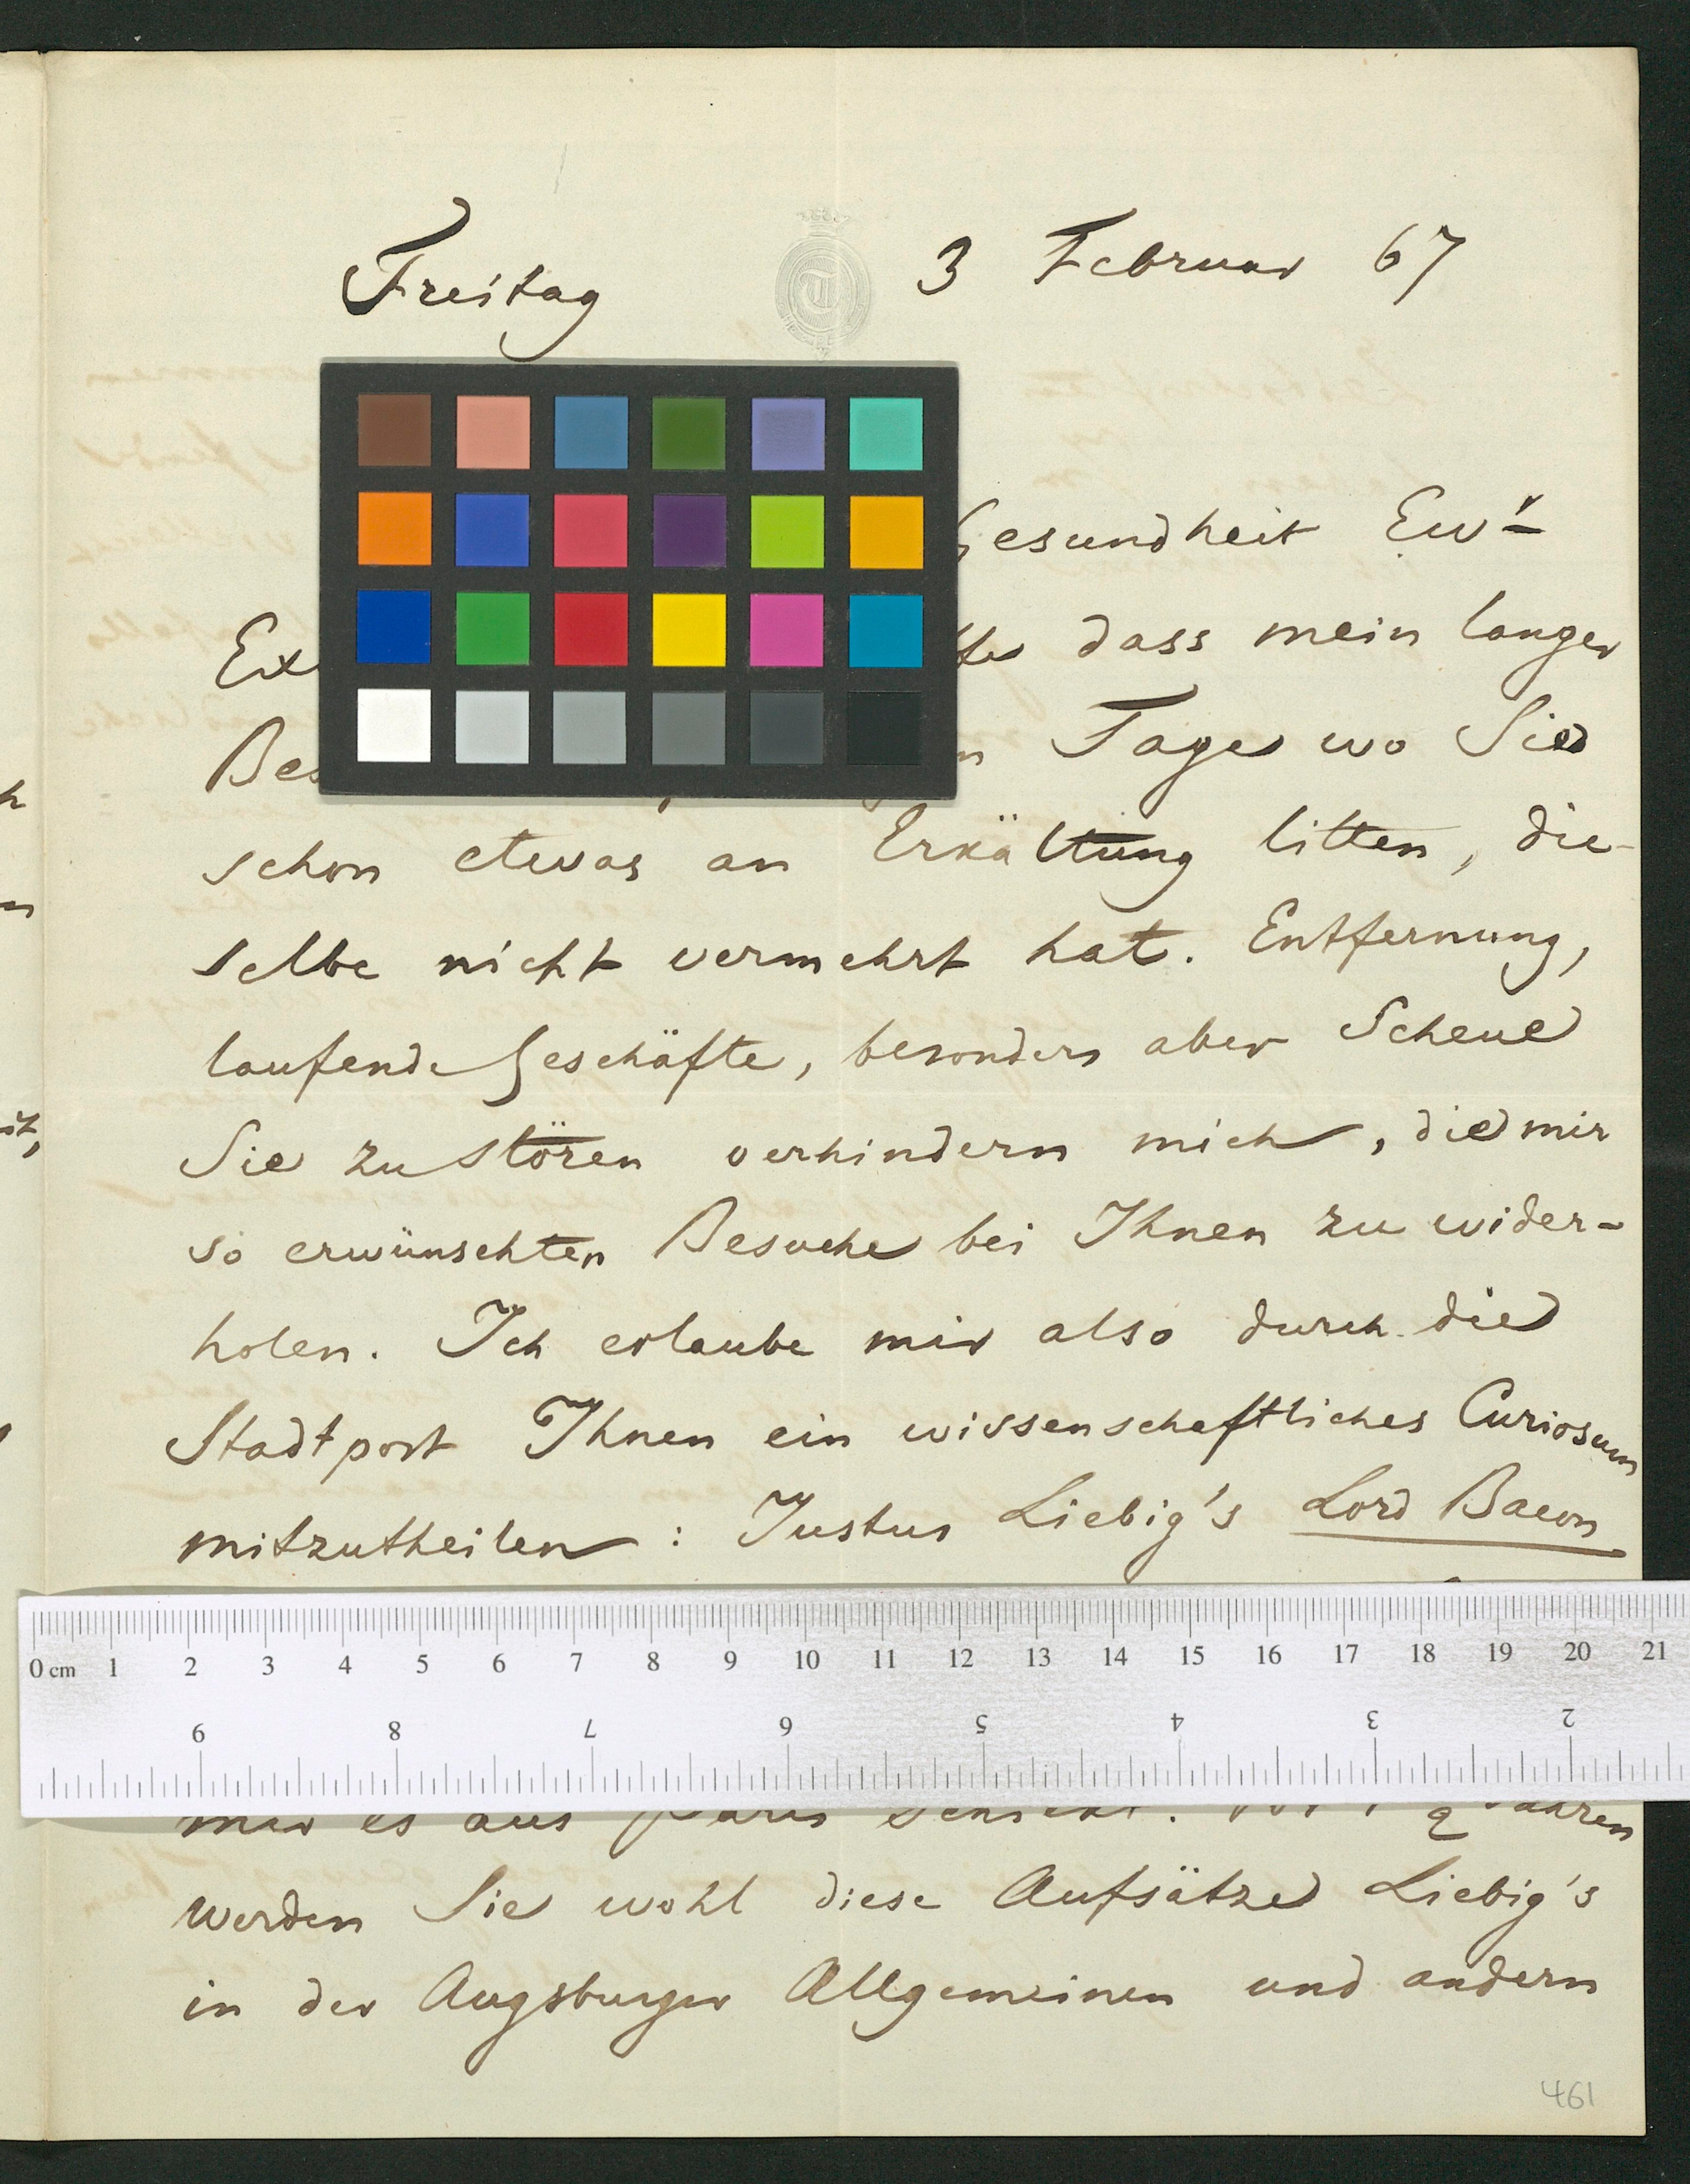 Freitag 3 Februar 67
Gesundheit Ewr
dass mein langer
Tage wo Sie
schon etwas an Erkältung litten, die-
selbe nicht vermehrt hat. Entfernung,
laufende Geschäfte, besonders aber Scheue
Sie zu stören verhindern mich, die mir
so erwünschten Besuche bei Ihnen zu wider-
holen. Ich erlaube mir also durch die
Stadtpost Ihnen ein wissenschaftliches Curiosum
mitzutheilen: Justus Liebig's Lord Bacon
0 cm 1 2 3 4 5 6 7 8 9 10 11 12 13 14 15 16 17 18 19 20 21
9 8 7 6 5 4 3 2
mir es aus Paris schickt. Jahren
werden Sie wohl diese Aufsätze Liebig's
in der Augsburger Allgemeinen und andern
461